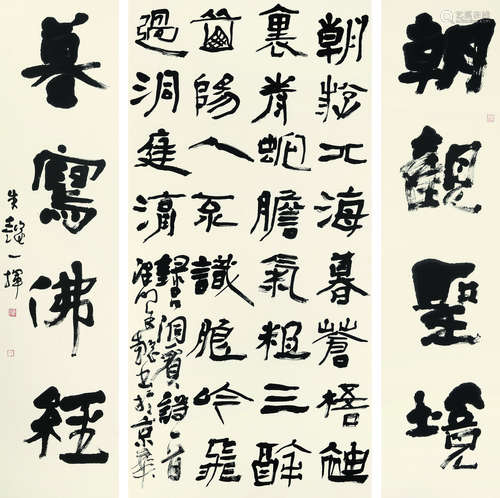 朝觀聖境
朝游北海暮蒼梧袖
裏青蛇膽氣粗三醉
岳陽人不識朗吟飛
過洞庭湖
錄呂洞賓詩一首
書於京華
暮寫佛經
一揮